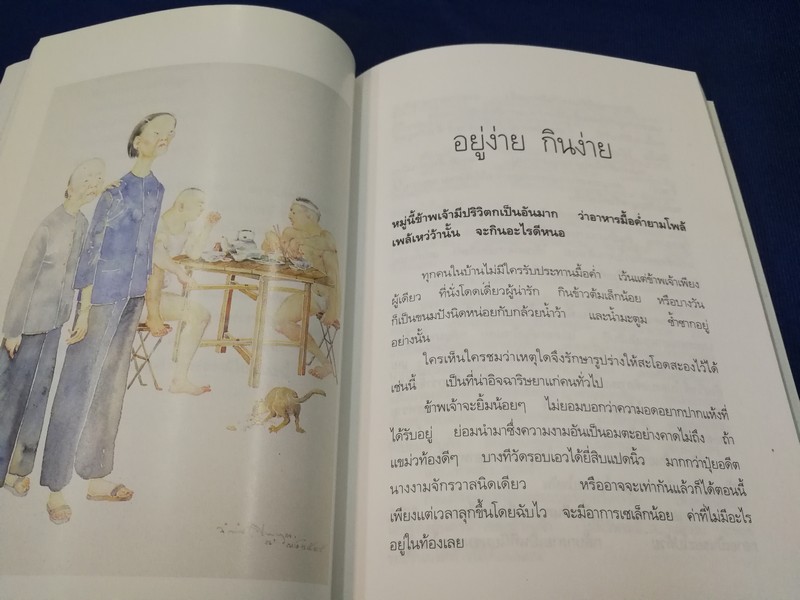 อยู่ง่าย กินง่าย
หมู่นี้ข้าพเจ้ามีปริวิตกเป็นอันมาก ว่าอาหารมื้อค่ำยามโพล้
เพล้เหว่ว้านั้น จะกินอะไรดีหนอ
ทุกคนในบ้านไม่มีใครรับประทานมื้อค่ำ เว้นแต่ข้าพเจ้าเพียง
ผู้เดียว ที่นั่งโดดเดี่ยวผู้น่ารัก กินข้าวต้มเล็กน้อย หรือบางวัน
ก็เป็นขนมปังนิดหน่อยกับกล้วยน้ำว้า และน้ำมะตูม ซ้ำซากอยู่
อย่างนั้น
ใครเห็นใครชมว่าเหตุใดจึงรักษารูปร่างให้สะโอดสะองไว้ได้
เช่นนี้ เป็นที่น่าอิจฉาริษยาแก่คนทั่วไป
ข้าพเจ้าจะยิ้มน้อยๆ ไม่ยอมบอกว่าความอดอยากปากแห้งที่
ได้รับอยู่ ย่อมนำมาซึ่งความงามอันเป็นอมตะอย่างคาดไม่ถึง ถ้า
แขม่วท้องดีๆ บางทีวัดรอบเอวได้ยี่สิบแปดนิ้ว มากกว่าปุ๋ยอดีต
นางงามจักรวาลนิดเดียว หรืออาจจะเท่ากันแล้วก็ได้ตอนนี้
เพียงแต่เวลาลุกขึ้นโดยฉับไว จะมีอาการเซเล็กน้อย ค่าที่ไม่มีอะไร
อยู่ในท้องเลย